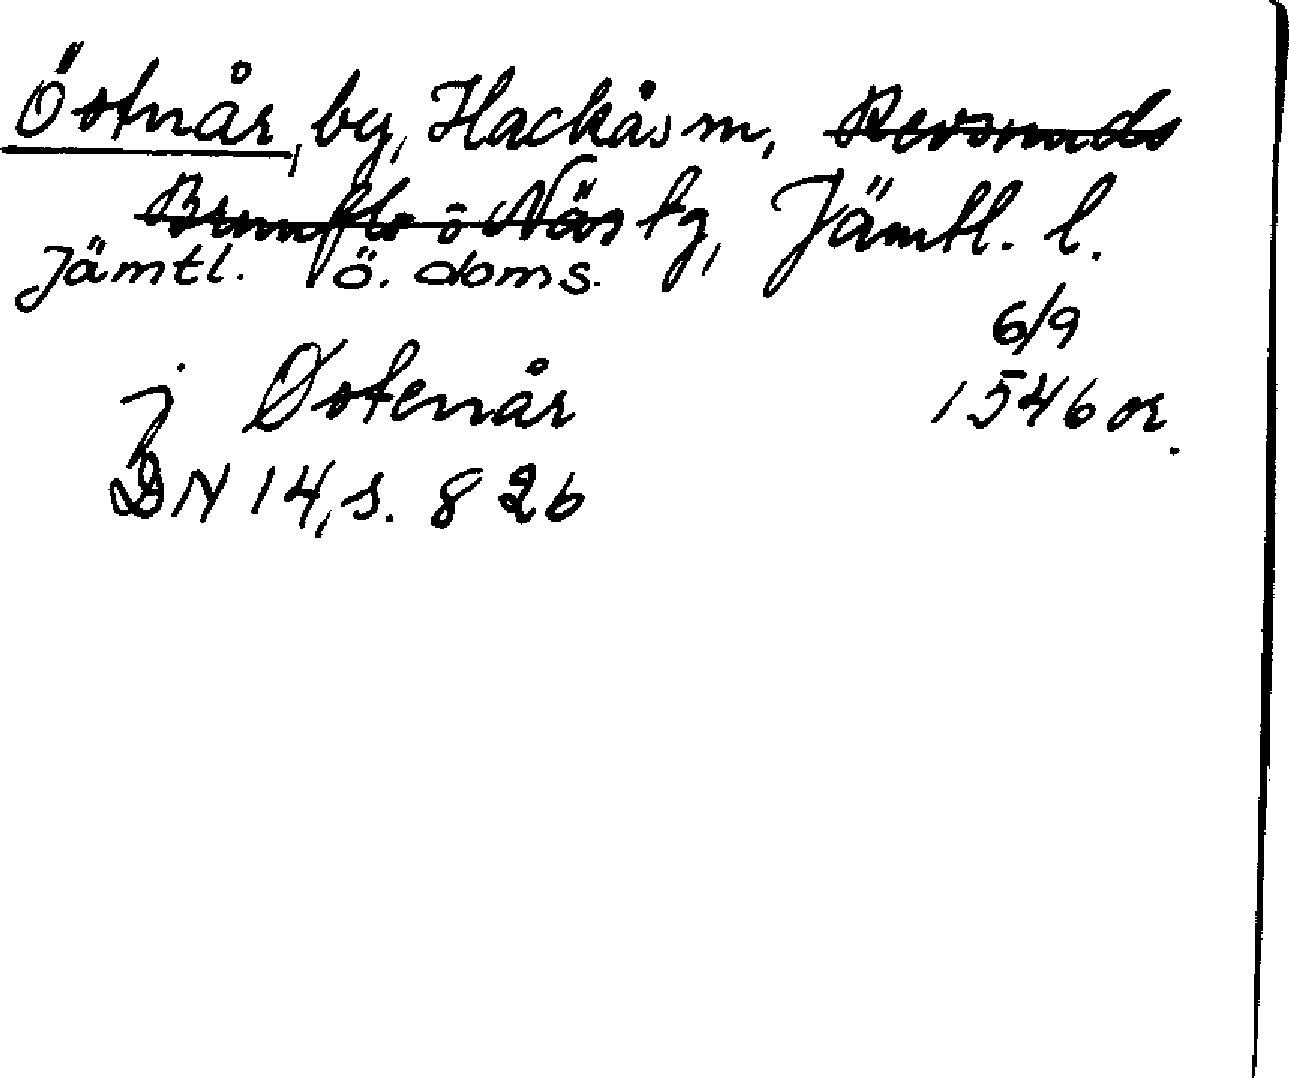 Östnår, by, Hackås sn, Revsunds
Brunflo o Näs tg, Jämtl. l.
Jämtl. ö. doms.
6/9
j Østenår 1546 or.
DN 14, s. 826